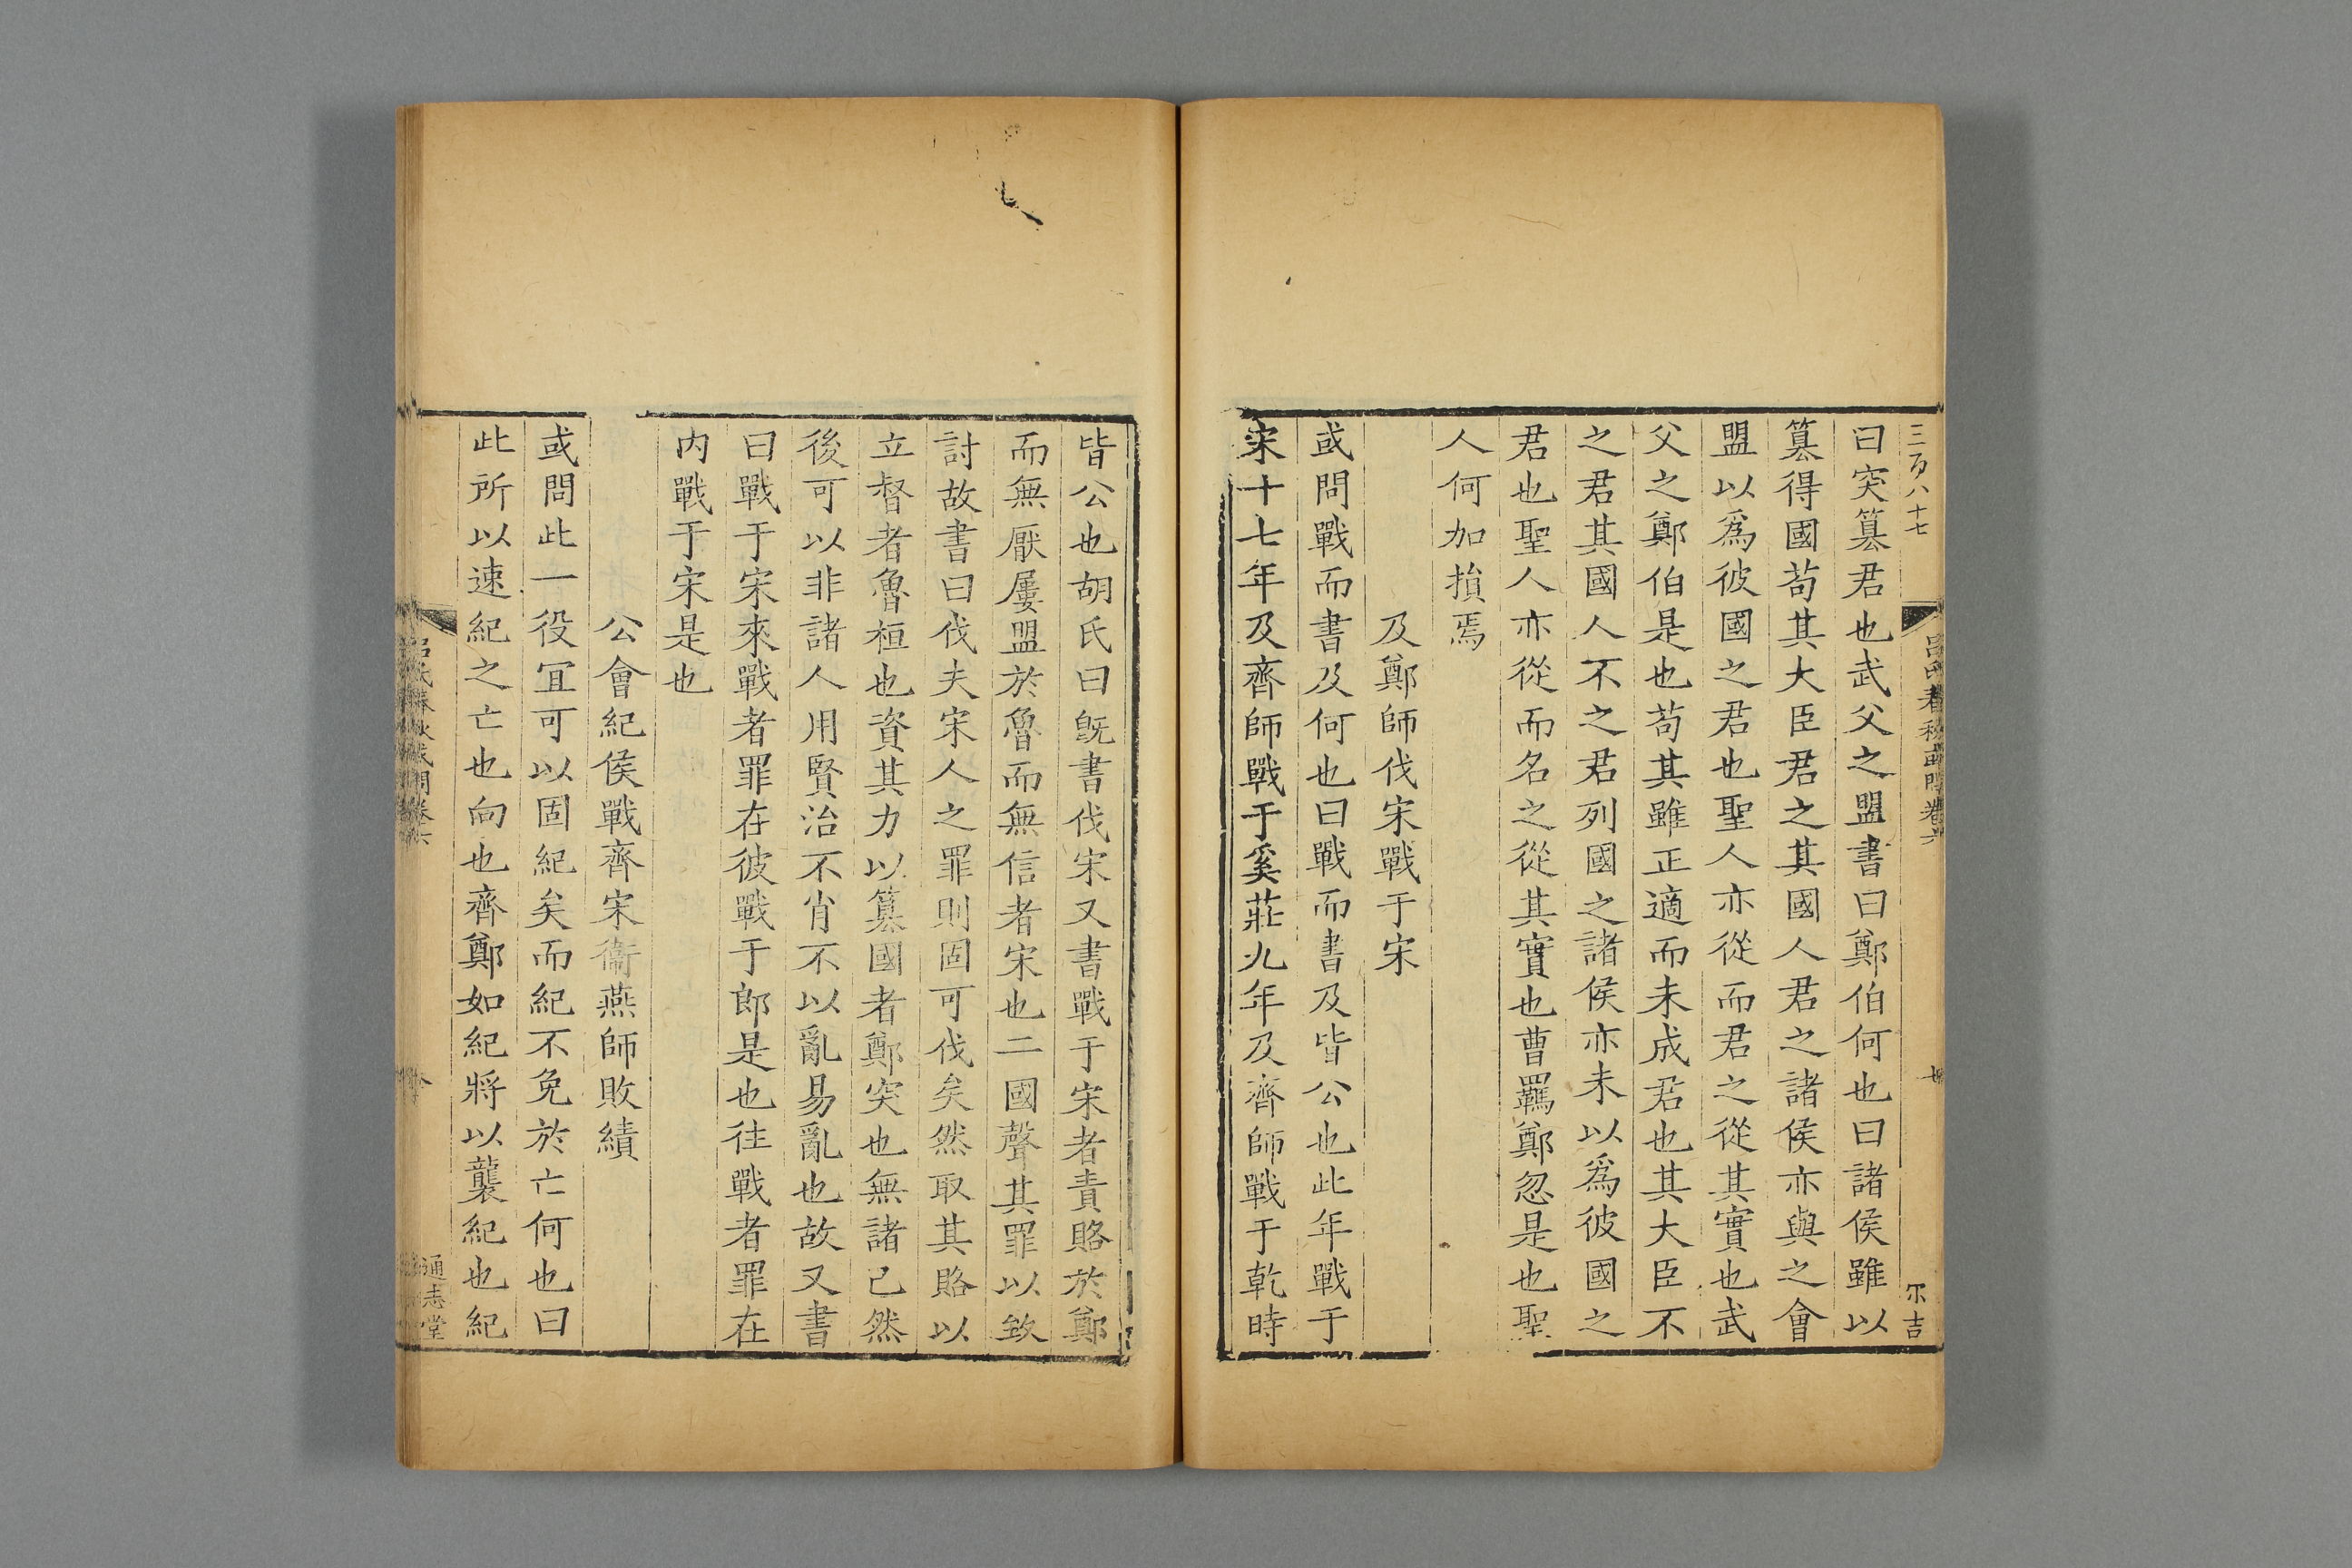 三百八十七
呂氏春秋或問卷六
尔吉
曰突篡君也武父之盟書曰鄭伯何也曰諸侯雖以
篡得國苟其大臣君之其國人君之諸侯亦與之會
盟以爲彼國之君也聖人亦從而君之從其實也武
父之鄭伯是也苟其雖正適而未成君也其大臣不
之君其國人不之君列國之諸侯亦未以爲彼國之
君也聖人亦從而名之從其實也曹羈鄭忽是也聖
人何加損焉
及鄭師伐宋戰于宋
或問戰而書及何也曰戰而書及皆公也此年戰于
宋十七年及齊師戰于奚莊九年及齊師戰于乾時
皆公也胡氏曰旣書伐宋又書戰于宋者責賂於鄭
而無厭屢盟於魯而無信者宋也二國聲其罪以致
討故書曰伐夫宋人之罪則固可伐矣然取其賂以
立督者魯桓也資其力以篡國者鄭突也無諸己然
後可以非諸人用賢治不肖不以亂易亂也故又書
曰戰于宋來戰者罪在彼戰于郎是也往戰者罪在
内戰于宋是也
公會紀侯戰齊宋衞燕師敗績
或問此一役冝可以固紀矣而紀不免於亡何也曰
此所以速紀之亡也向也齊鄭如紀將以襲紀也紀
呂氏春秋或問卷六
通志堂